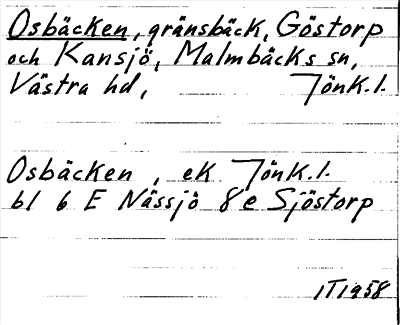 Osbäcken, gränsbäck, Göstorp
och Kansjö, Malmbäcks sn,
Västra hd, Jönk.l.
Osbäcken, ek Jönk.l.
bl 6 E Nässjö 8e Sjöstorp
IT1958